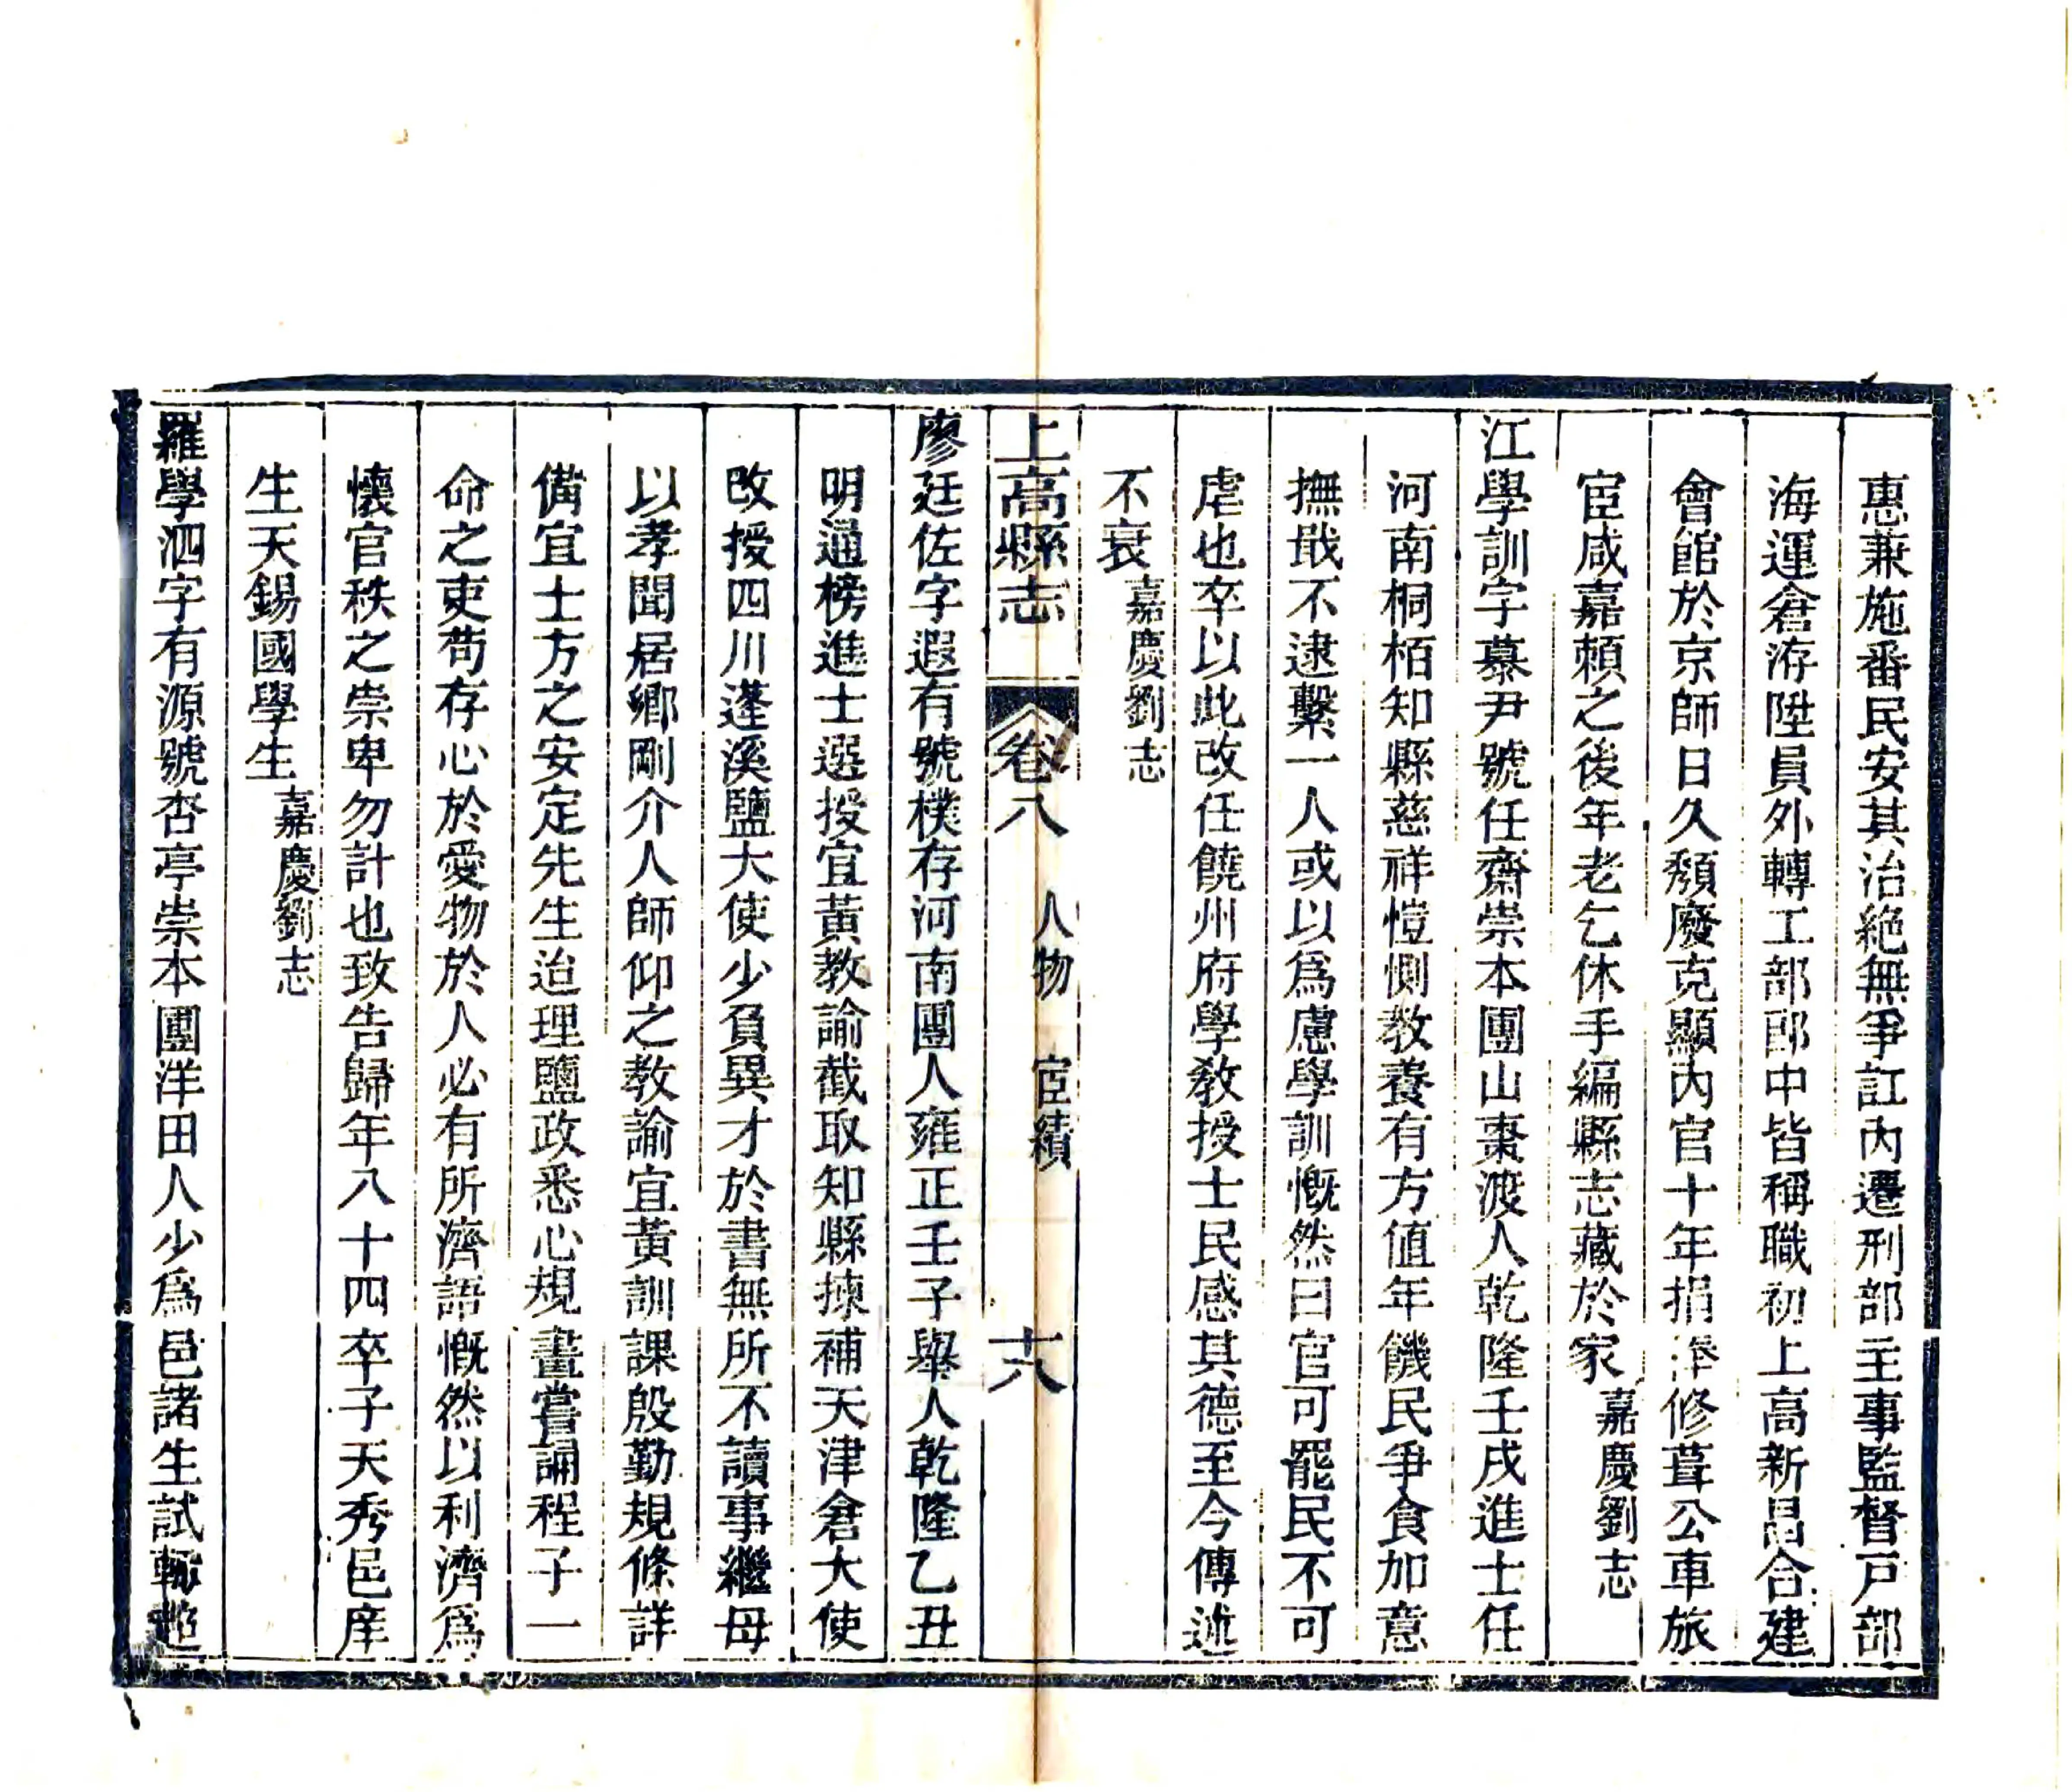 惠兼施番民安其治絶無爭訌內遷刑部主事監督戸部
海運倉洊陞員外轉工部郎中皆稱職初上高新昌合建
會館於京師日久頽廢克顯內官十年捐俸修葺公車旅
宦咸嘉頼之後年老乞休手編縣志藏於家嘉慶劉志
江學訓字慕尹號任齋崇本團山棗渡人乾隆壬戌進士任
河南桐栢知縣慈祥愷惻教養有方値年饑民爭食加意
撫戢不逮繫一人或以爲慮學訓慨然曰官可罷民不可
虐也卒以此改任饒州府學教授士民感其德至今傳述
不衰嘉慶劉志
上高縣志 卷八 人物 宦績 十八
廖廷佐字遐有號樸存河南團人雍正壬子舉人乾隆乙丑
明通榜進士選授宜黃教諭截取知縣揀補天津倉大使
改授四川蓬溪鹽大使少負異才於書無所不讀事繼母
以孝聞居鄉剛介人師仰之教諭宜黃訓課殷勤規條詳
備宜士方之安定先生迨理鹽政悉心規畫嘗誦程子一
命之吏苟存心於愛物於人必有所濟語慨然以利濟爲
懷官秩之崇卑勿計也致告歸年八十四卒子天秀邑庠
生天錫國學生嘉慶劉志
羅學泗字有源號杏亭崇本團洋田人少爲邑諸生試輒